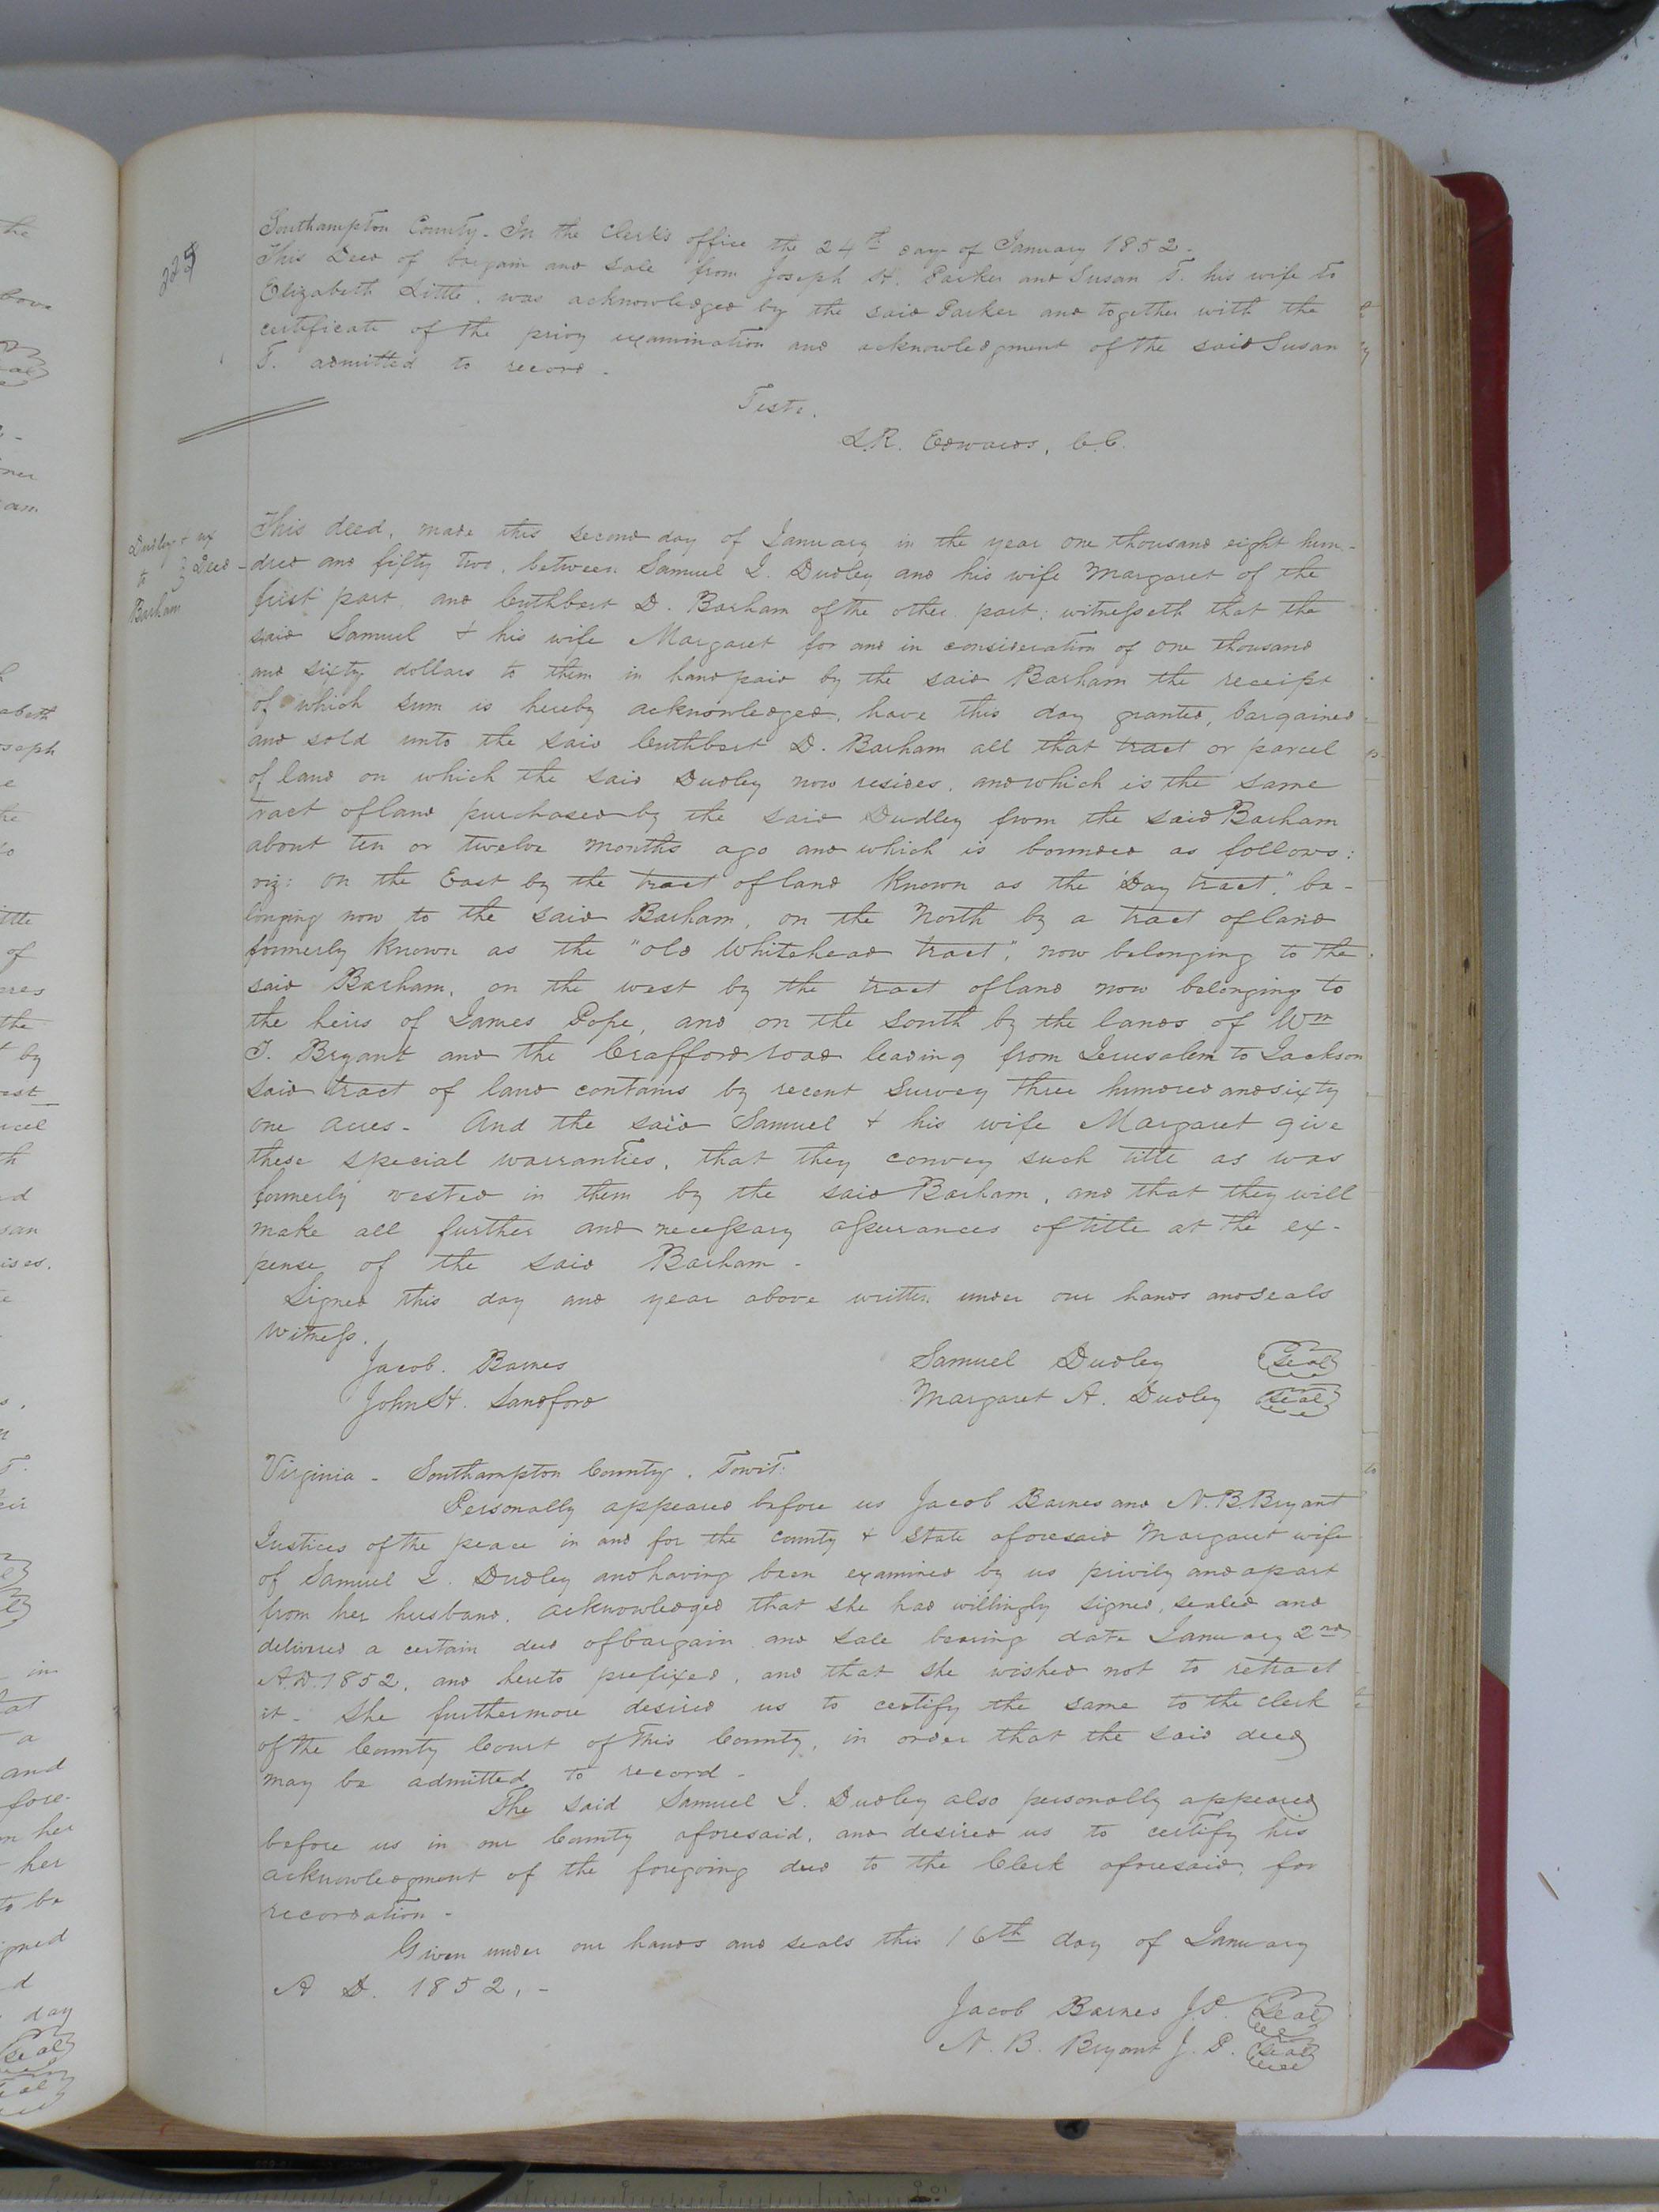 225
Southampton County. In the Clerk's office the 24th day of January 1852.
This Deed of bargain and sale from Joseph H. Parker and Susan T. his wife to
Elizabeth Little, was acknowledged by the said Parker and together with the
certificate of the privy examination and acknowledgment of the said Susan
T. admitted to record.
Teste.
L.R. Edwards, C.C.
Dudley & ux
to } Deed
Barham
This deed, made this second day of January in the year one thousand eight hun-
dred and fifty two, between Samuel I. Dudley and his wife Margaret of the
first part, and Cuthbert D. Barham of the other part; witnesseth that the
said Samuel & his wife Margaret for and in consideration of one thousand
and sixty dollars to them in hand paid by the said Barham the receipt
of which sum is hereby acknowledged, have this day granted, bargained
and sold unto the said Cuthbert D. Barham all that tract or parcel
of land on which the said Dudley now resides, and which is the same
tract of land purchased by the said Dudley from the said Barham
about ten or twelve months ago and which is bounded as follows:
viz: on the East by the tract of land known as the "Day tract," be-
longing now to the said Barham, on the North by a tract of land
formerly known as the "old Whitehead tract", now belonging to the
said Barham, on the west by the tract of land now belonging to
the heirs of James Pope, and on the South by the lands of Wm
J. Bryant and the Crafford road leading from Jerusalem to Jackson
said tract of land contains by recent survey three hundred and sixty
one acres - And the said Samuel & his wife Margaret give
these special warranties, that they convey such title as was
formerly vested in them by the said Barham, and that they will
make all further and necessary assurances of title at the ex-
pense of the said Barham -
Signed this day and year above written under our hands and seals
Witness.
Jacob. Barnes Samuel Dudley Seal
John H. Sandford Margaret A. Dudley Seal
Virginia - Southampton County. Towit:
Personally appeared before us Jacob Barnes and N.B. Bryant
Justices of the peace in and for the county & State aforesaid Margaret wife
of Samuel I. Dudley and having been examined by us privily and apart
from her husband, acknowledged that she had willingly signed, sealed and
delivered a certain deed of bargain and sale bearing date January 2nd
A.D. 1852, and hereto prefixed, and that she wished not to retract
it - She furthermore desired us to certify the same to the Clerk
of the County Court of this County, in order that the said deed
may be admitted to record -
The said Samuel I. Dudley also personally appeared
before us in our County aforesaid, and desired us to certify his
acknowledgment of the foregoing deed to the Clerk aforesaid, for
recordation -
Given under our hands and seals this 16th day of January
A D. 1852. -
Jacob Barnes J.P. Seal
N. B. Bryant J. P. Seal